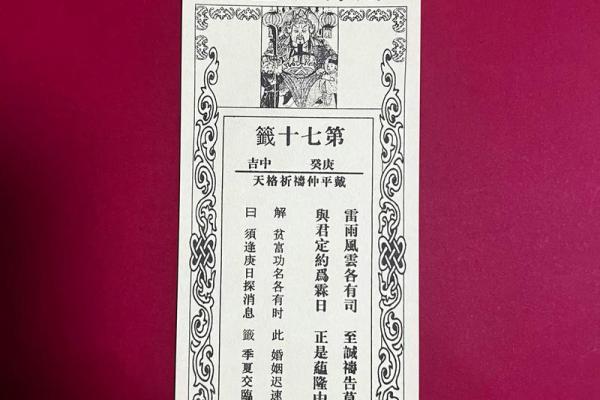 第七十籤
庚癸 中吉
戴平仲禱祈格天
雷雨風雲各有司 至誠禱告
與君定約爲霖日 正是蘊隆
解 貧富功名各有时 此 婚姻迟速
曰 須逢庚日探消息 籤 季夏交臨